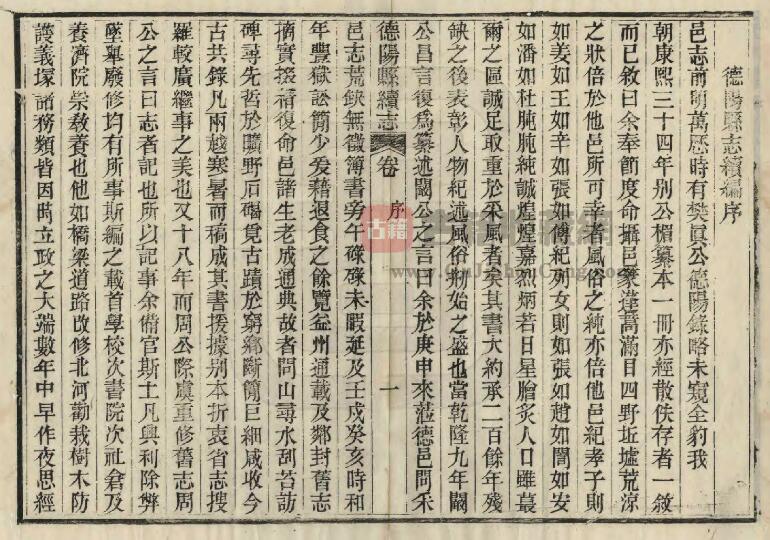 德陽縣志續編序
邑志前明萬歷時有樊眞公德陽錄略未窺全豹我
朝康熙三十四年別公楣纂本一冊亦經散佚存者一敘
而已敘曰余奉節度命攝邑篆蓬蒿滿目四野坵墟荒涼
之狀倍於他邑所可幸者風俗之純亦倍他邑紀孝子則
如姜如王如辛如張如傅紀列女則如張如趙如閻如安
如潘如杜肫肫純誠煌煌嘉烈炳若日星膾炙人口雖蕞
爾之區誠足取重於采風者矣其書大約承二百餘年殘
缺之後表彰人物紀述風俗刱始之盛也當乾隆九年闞
公昌言復爲纂述闞公之言曰余於庚申來蒞德邑問禾
德陽縣續志 卷 序 一
邑志荒缺無徵簿書旁午碌碌未暇延及壬戌癸亥時和
年豐獄訟簡少爰藉退食之餘覽益州通載及鄰封舊志
摘實掇精復命邑諸生老成通典故者問山尋水刮苔訪
碑尋先哲於曠野石碣覓古蹟於窮鄉斷簡巨細咸收今
古共錄凡兩越寒暑而稿成其書援據別本折衷省志搜
羅較廣繼事之美也又十八年而周公際虞重修舊志周
公之言曰志者記也所以記事余備官斯土凡興利除弊
墜舉廢修均有所事斯編之載首學校次書院次社倉及
養濟院崇敎養也他如橋梁道路改修北河勸栽樹木防
護義塚諸務類皆因時立政之大端數年中早作夜思經
古籍